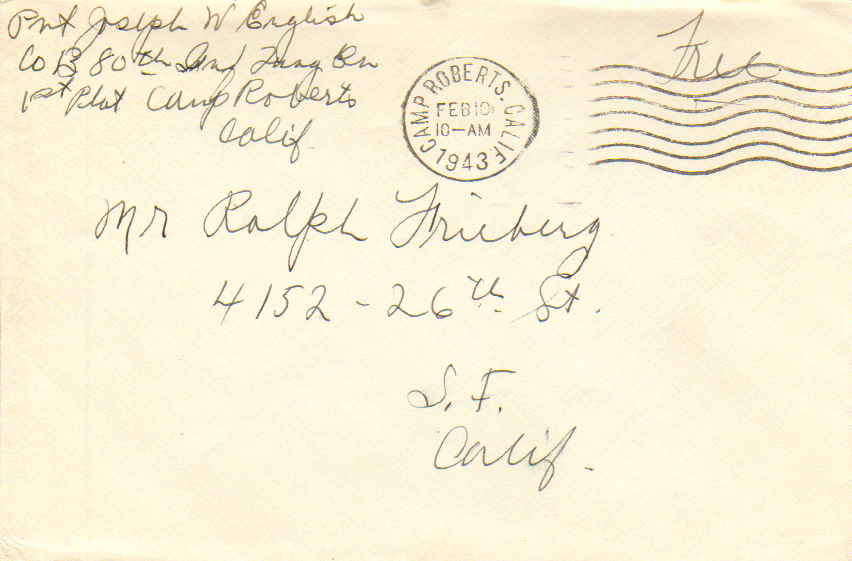 Pvt Joseph W English
Co B 80th Inf Trng Bn
1st Plat Camp Roberts
Calif.
CAMP ROBERTS. CALIF.
FEB 10
10-AM
1943
Free
Mr Ralph Frieberg
4152 - 26th St.
S. F.
Calif.